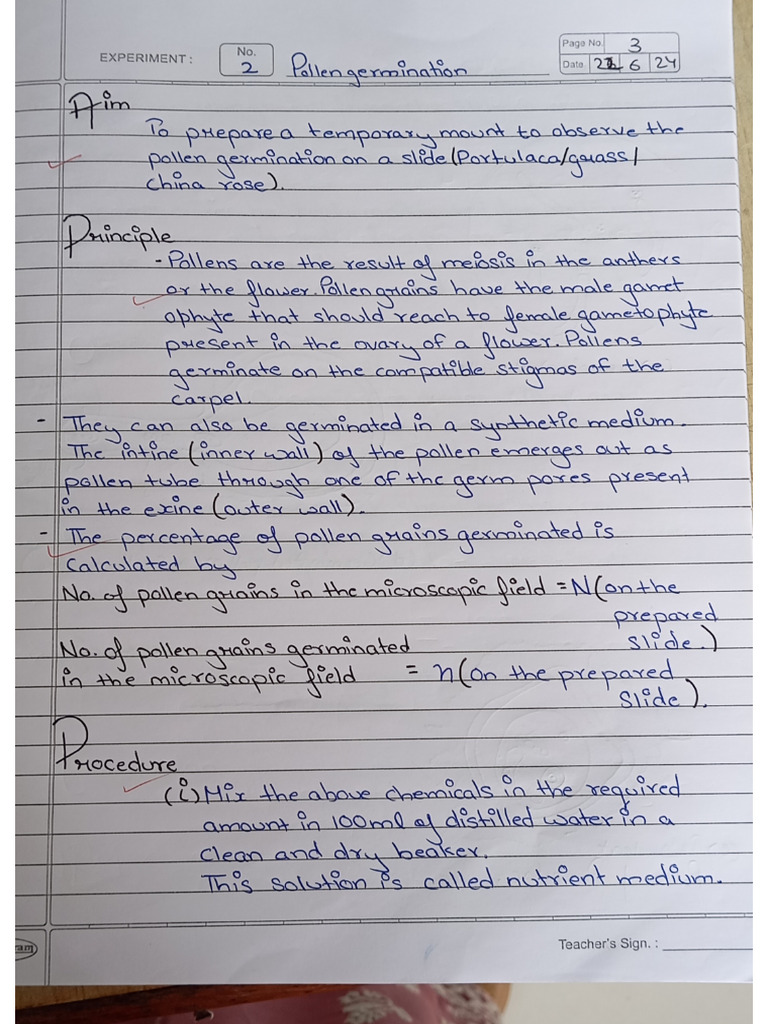 EXPERIMENT : No. 2 Pollen germination Page No. 3
Date 6 24
Aim
To prepare a temporary mount to observe the
pollen germination on a slide (Portulaca/grass/
China rose).
Principle
- Pollens are the result of meiosis in the anthers
or the flower. Pollen grains have the male gamet
ophyte that should reach to female gametophyte
present in the ovary of a flower. Pollens
germinate on the compatible stigmas of the
carpel.
- They can also be germinated in a synthetic medium.
The intine (inner wall) of the pollen emerges out as
pollen tube through one of the germ pores present
in the exine (outer wall).
- The percentage of pollen grains germinated is
calculated by
No. of pollen grains in the microscopic field = N (on the
prepared
slide.)
No. of pollen grains germinated
in the microscopic field = n (on the prepared
slide).
Procedure
(i) Mix the above chemicals in the required
amount in 100ml of distilled water in a
clean and dry beaker.
This solution is called nutrient medium.
Teacher's Sign. :